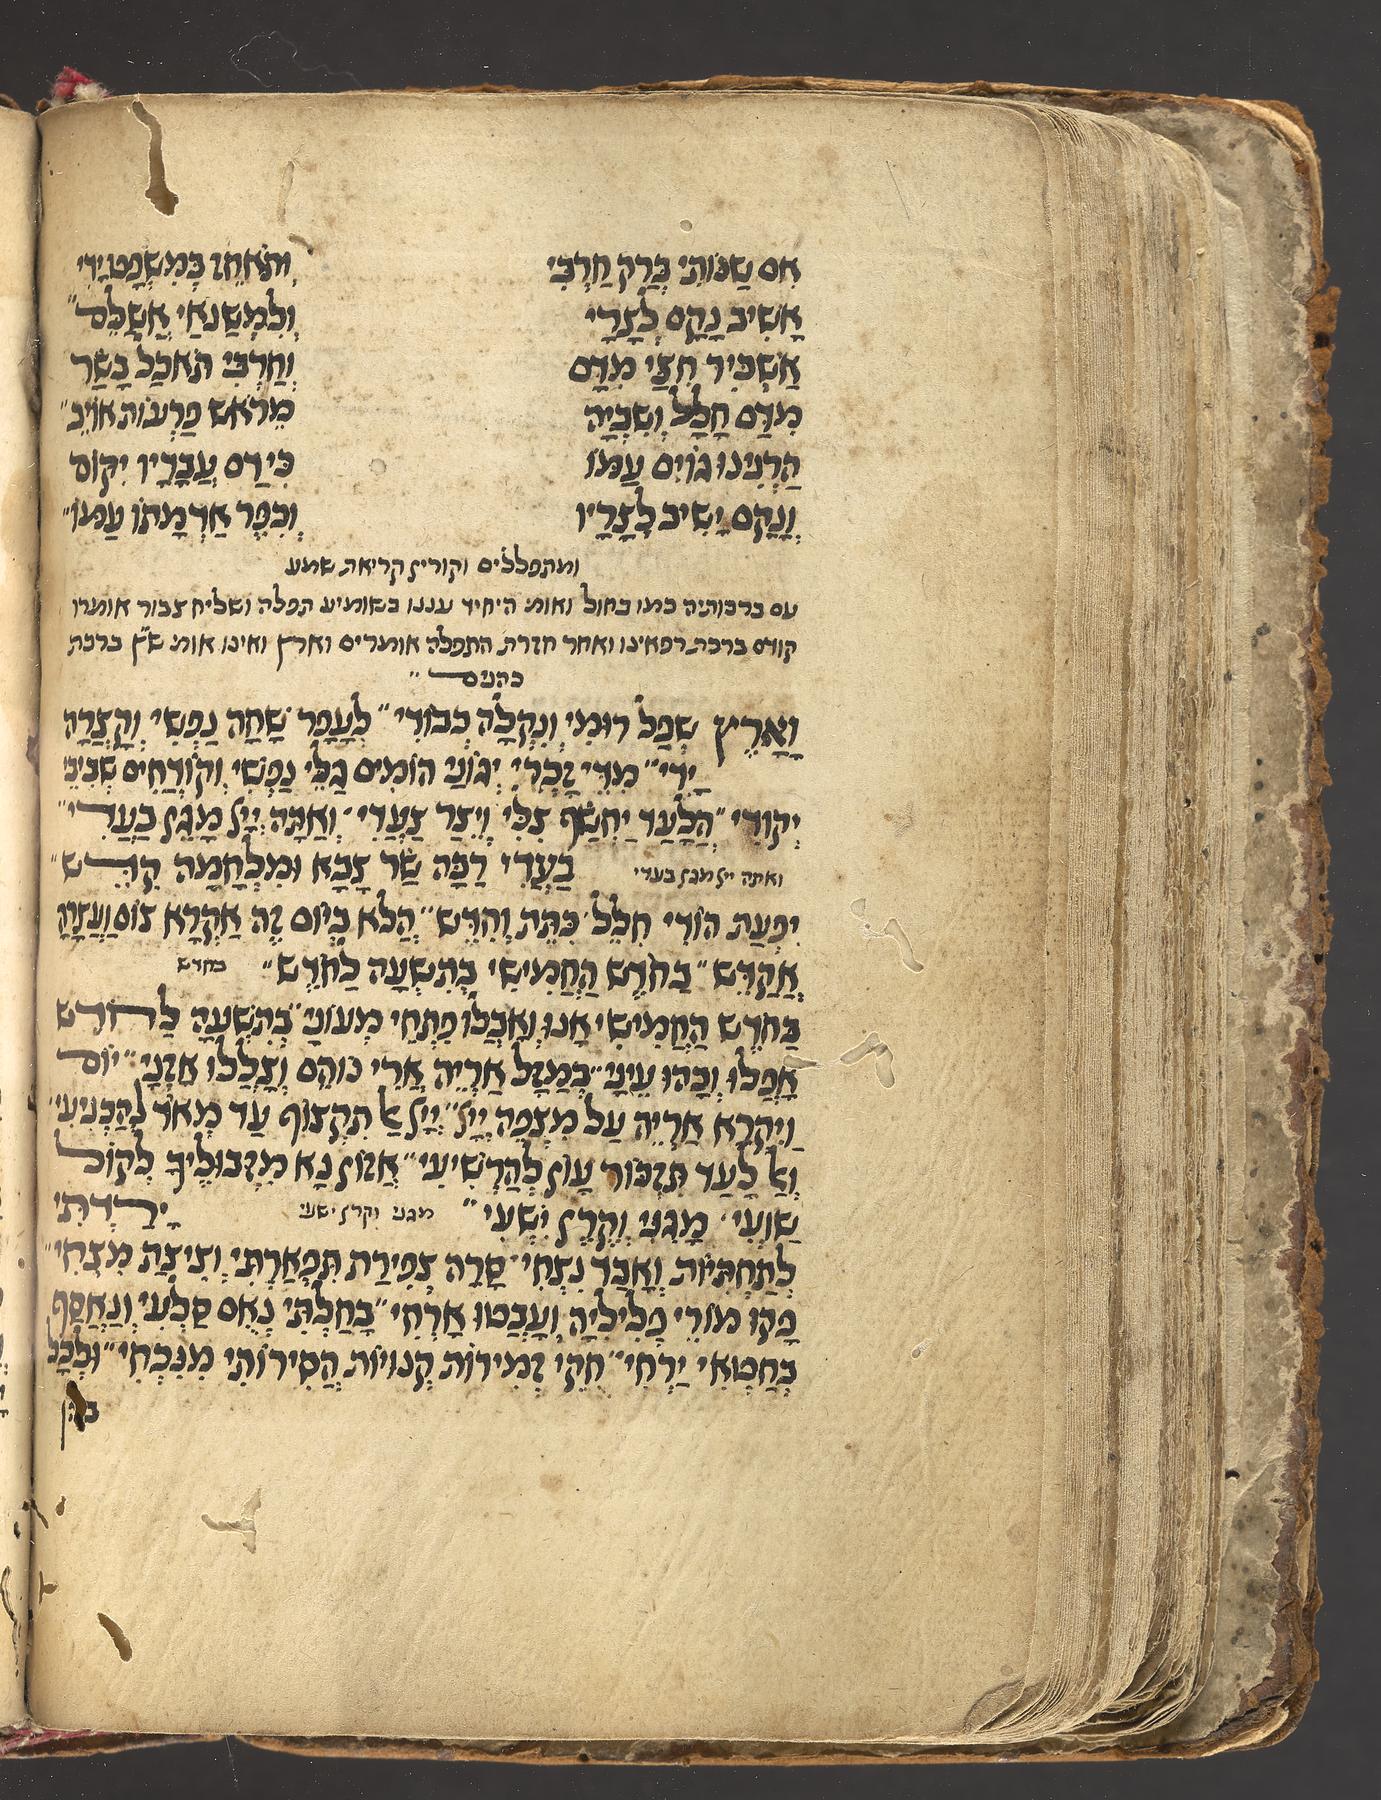 אִם שַׁנּוֹתִי בְּרַק חַרְבִּי וְתֹאחֵז בְּמִשְׁפָּט יָדִי
אָשִׁיב נָקָם לְצָרָי וְלִמְשַׂנְאַי אֲשַׁלֵּם״
אַשְׁכִּיר חִצַּי מִדָּם וְחַרְבִּי תֹּאכַל בָּשָׂר
מִדַּם חָלָל וְשִׁבְיָה מֵרֹאשׁ פַּרְעוֹת אוֹיֵב״
הַרְנִינוּ גוֹיִם עַמּוֹ כִּי דַם עֲבָדָיו יִקּוֹם
וְנָקָם יָשִׁיב לְצָרָיו וְכִפֶּר אַדְמָתוֹ עַמּוֹ״
ומתפללים וקורין קריאת שמע
עם ברכותיה כמו בחול ואומ׳ היחיד עננו בשומיע תפלה ושליח צבור אומרו
קודם ברכת רפאינו ואחר חזרת התפלה אומרים וארץ ואינו אומ׳ ש״ץ ברכת
כהנים״
וָאָרֶץ שְׁפַל רוּמִי וְנִקְלָה כְבוֹדִי״ לְעָפָר שָׁחָה נַפְשִׁי וְקָצְרָה
יָדִי״ מִדֵּי זָכְרִי יְגוֹנַי הוֹמִים גַּלֵּי נַפְשִׁי וְקוֹדְחִים שְׁבִיבֵי
יְקוֹדִי״ הֲלָעַד יַחְשֹׂף צִלִּי וְיֵצַר צַעֲדִי״ וְאַתָּה יְיָ׳ מָגֵן בַּעֲדִי״
ואתה יי׳ מגן בעדי בַּעֲדִי רַבָּה שַׂר צָבָא וּמִלְחָמָה קִדֵּשׁ״
יִפְעַת הוֹדִי חִלֵּל כִּתֵּת וְהִדֵּשׁ״ הֲלֹא כְיוֹם זֶה אֶקְרָא צוֹם וַעֲצָרָה
אֲקַדֵּשׁ״ בַּחֹדֶשׁ הַחֲמִישִׁי בְּתִשְׁעָה לַחֹדֶשׁ״ בחדש
בַּחֹדֶשׁ הַחֲמִישִׁי אָנוּ וְאָבְלוּ פִּתְחֵי מְעוֹנָי״ בְּתִשְׁעָה לַחֹדֶשׁ
אָפְלוּ וְכָהוּ עֵינָי״ בְּמַזַּל אַרְיֵה אֲרִי נוֹהֵם וְצָלְלוּ אָזְנָי״ יוֹם
וַיִּקְרָא אַרְיֵה עַל מִצְפֶּה יְיָ׳״ יְיָ׳ אַל תִּקְצוֹף עַד מְאֹד לְהַכְנִיעִי״
וְאַל לָעַד תִּזְכּוֹר עָוֹן לְהַרְשִׁיעִי״ אֲזוֹן נָא מִזְּבוּלֶיךָ לְקוֹל
שַׁוְעִי״ מָגִנִּי וְקֶרֶן יִשְׁעִי״ מגני וקרן ישעי יָרַדְתִּי
לְתַחְתִּיּוֹת וְאָבַד נִצְחִי״ סָרָה צְפִירַת תִּפְאַרְתִּי וְצִיצַת מִצְחִי״
פָּקוּ מוֹרֵי פְלִילִיָּה וְעָבְטוּ אָרְחִי״ בָּחַלְתִּי נְאֻם סַלְעִי וְנֶאֱסַף
בְּחַטְאִי יַרְחִי״ חֻקֵּי זְמִירוֹת קְנוּיוֹת הֲסִירוֹתִי מִנִּכְחִי״ וּלְכָל